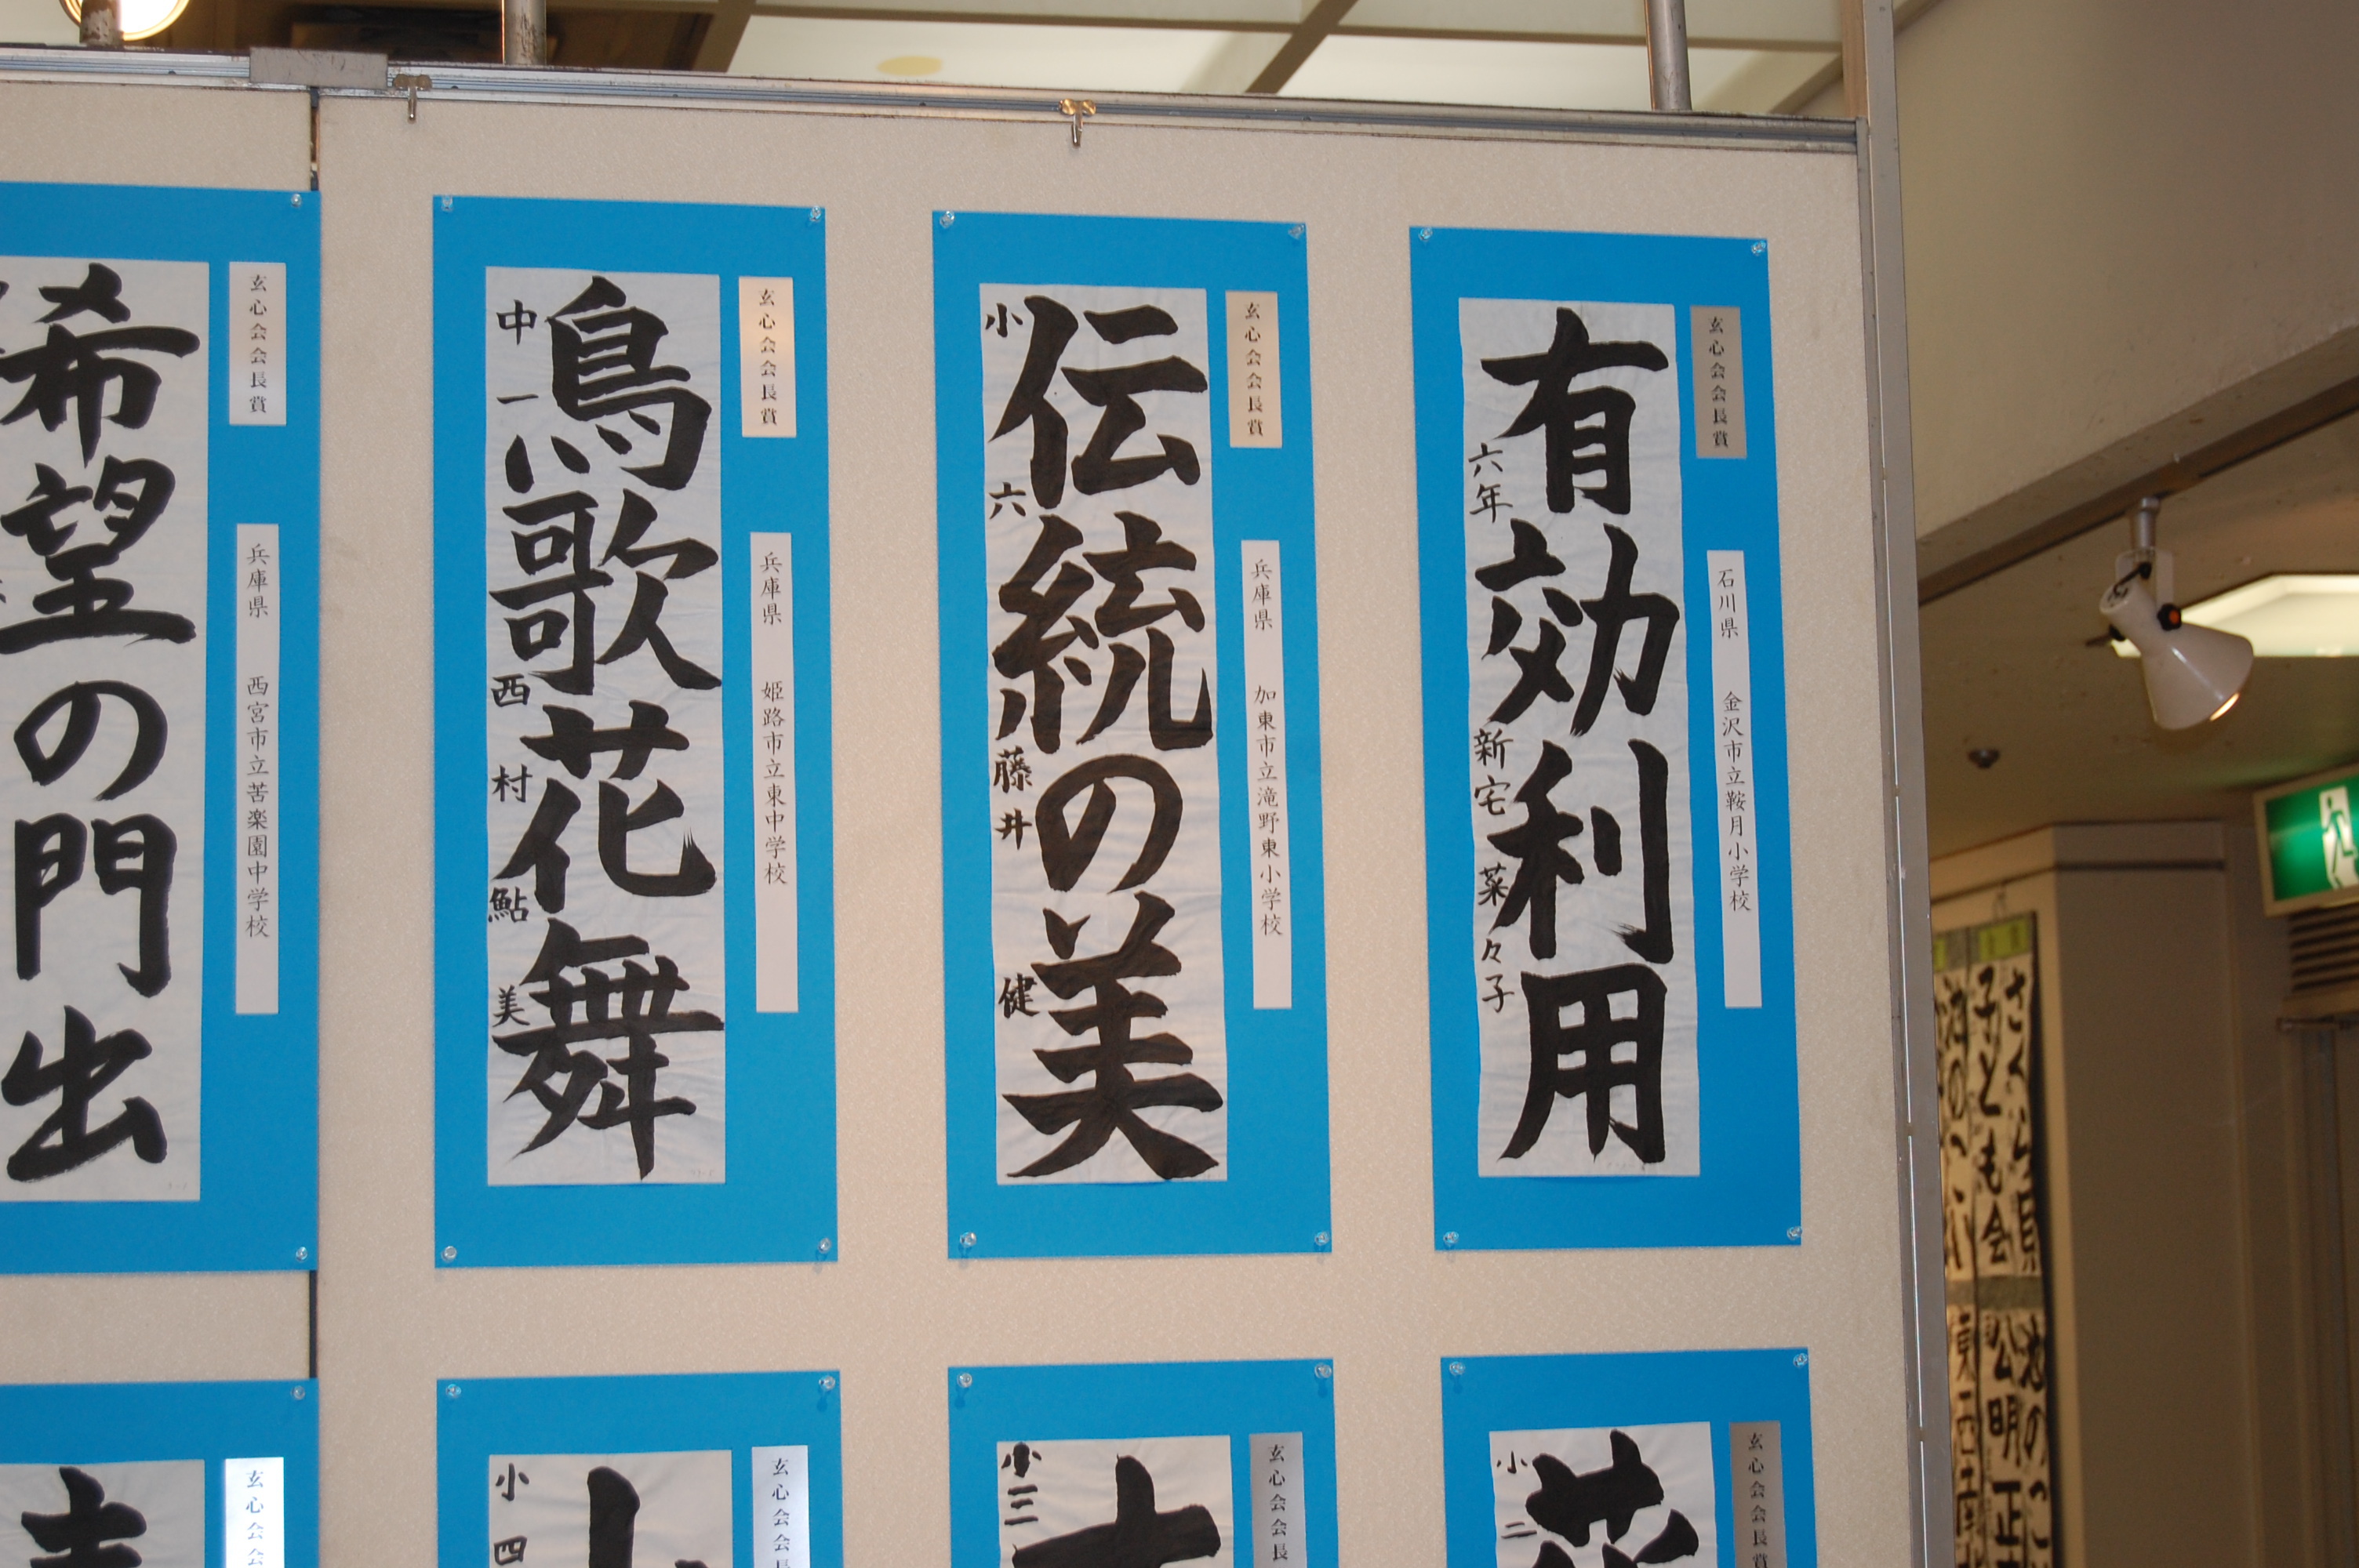 玄心会会長賞
石川県 金沢市立鞍月小学校
有効利用
六年 新宅菜々子
玄心会会長賞
兵庫県 加東市立滝野東小学校
伝統の美
小六 藤井健
玄心会会長賞
兵庫県 姫路市立東中学校
鳥歌花舞
中一 西村鮎美
玄心会会長賞
兵庫県 西宮市立苦楽園中学校
希望の門出
玄心会会長賞
花
小二
玄心会会長
小三
玄心会会長
小四
玄心会会
子ども会
公明正